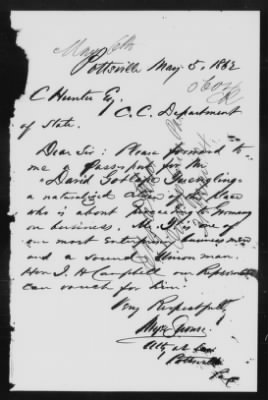 May 6th
Pottsville May 5, 1862
C Hunter Esq.
C. C. Department
of State.
Dear Sir: Please forward to
me a passport for Mr
David Gotlobe Yuengling
a naturalized citizen of this place
who is about proceeding to Germany
on business. Mr. Y is one of
our most enterprising business men
and a sound Union man.
Hon J. H Campbell our Representative
can vouch for him.
Very Respectfully
Atty at Law
Pottsville
Pa